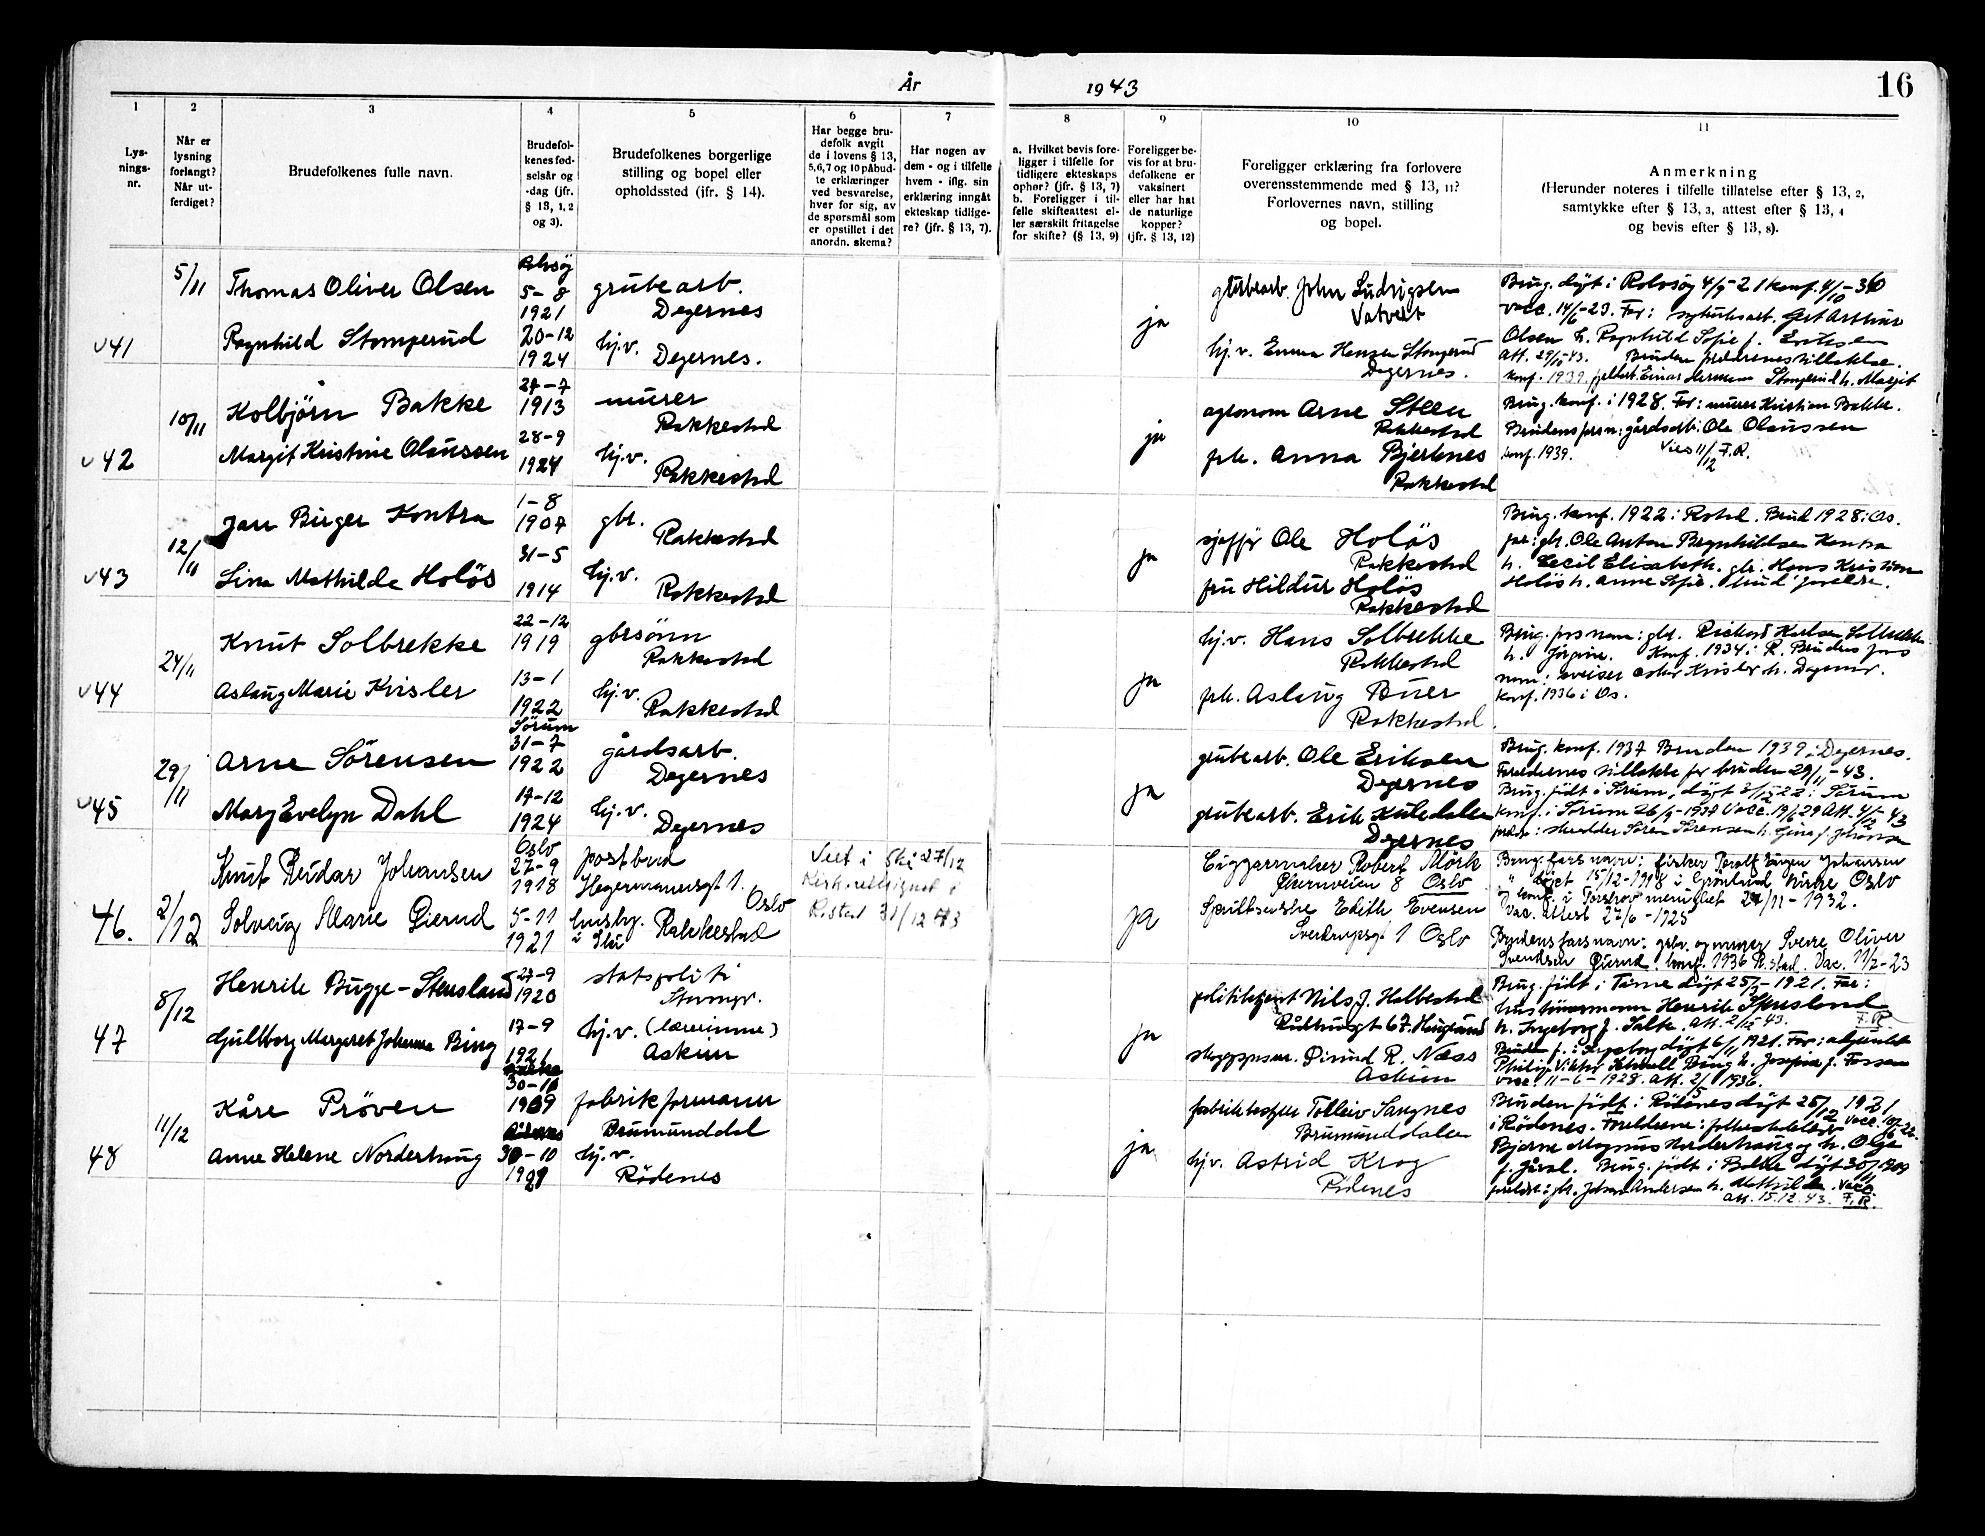 År 1943
16
1
2
3
4
5
6
7
8
9
10
11
Lys-
nings-
nr.
Når er
lysning
forlangt?
Når ut-
ferdiget?
Brudefolkenes fulle navn.
Brudefol-
kenes fød-
selsår og
-dag (jfr.
§ 13, 1, 2
og 3).
Brudefolkenes borgerlige
stilling og bopel eller
opholdssted (jfr. § 14).
Har begge bru-
defolk avgit
de i lovens § 13,
5,6,7 og 10 påbud-
te erklæringer
ved besvarelse,
hver for sig, av
de spørsmål som
er opstillet i det
anordn. skema?
Har nogen av
dem - og i tilfelle
hvem - iflg. sin
erklæring inngått
ekteskap tidlige-
re? (jfr. § 13, 7).
a. Hvilket bevis fore-
ligger i tilfelle for
tidligere ekteskaps
ophør? (jfr. § 13, 7)
b. Foreligger i til-
felle skifteattest el-
ler særskilt fritagelse
for skifte? (§ 13, 9)
Foreligger be-
vis for at bru-
defolkene er
vaksinert
eller har hat
de naturlige
kopper?
(jfr. § 13, 12)
Foreligger erklæring fra forlovere
overensstemmende med § 13, 11?
Forlovernes navn, stilling
og bopel.
Anmerkning
(Herunder noteres i tilfelle tillatelse efter § 13, 2,
samtykke efter § 13, 3, attest efter § 13, 4
og bevis efter § 13, 8).
41
5/11
Thomas Oliver Olsen
Ragnhild Stomperud
Rolvsøy
5-8
1921
20-12
1924
grubearb.
Degernes
hj.v.
Degernes.
ja
grubearb. John Ludvigsen
hj.v. Emma Hansen Stomperud
Degernes.
Brug. døpt i Rolvsøy 4/9-21 konf. 4/10-36
vacc. 14/6-23. Far: Gert Arthur
Olsen h. Ragnhild Sofie f.
Att. 29/10-43. Bruden foreldrenes tillatelse.
konf. 1939. Einar Herman Stomperud h. Margit
42
10/11
Kolbjörn Bakke
Margit Kristine Olaussen
27-7
1913
28-9
1924
murer
Rakkestad
hj.v.
Rakkestad
ja
agronom Arne Steen
Rakkestad
frk. Anna Bjerknes
Rakkestad
Brug. konf. i 1928. Far: murer Kristian Bakke.
Brudens farsn: gårdsarb: Ole Olaussen
konf. 1939. Vies 11/12 F.R.
43
12/11
Jan Birger Kontra
Lina Mathilde Holös
1-8
1907
31-5
1914
gbr.
Rakkestad
hj.v.
Rakkestad
ja
sjåffør Ole Holös
Rakkestad
fru Hildur Holös
Rakkestad
Brug. konf. 1922 i Rstad. Brud 1928 i Os.
far: gbr. Ole Anton Kontra
h. Cecil Elisabeth. gbr. Hans Kristian
Holös h. Anne Sofie.
44
24/11
Knut Solbrekke
Aslaug Marie Krisler
22-12
1919
13-1
1922
gbrsönn
Rakkestad
hj.v.
Rakkestad
ja
hj.v. Hans Solbrekke
Rakkestad
frk. Aslaug Buer
Rakkestad
Brug. fars navn: gbr. Rickard Karlsen Solbrekke
h. Jörgine. Konf. 1934 i R. Brudens fars
navn: Krisler h. Dagmar.
konf. 1936 i Os.
45
29/11
Arne Sörensen
Mary Evelyn Dahl
Sörum
31-7
1922
17-12
1924
gårdsarb.
Degernes
hj.v.
Degernes
ja
grubearb. Ole Eriksen
Degernes
grubearb. Erik Kuledalen
Degernes
Brug. konf. 1937 Bruden 1939 i Degernes.
Foreldrenes tillatelse for bruden 29/11-43.
Brug. född i Sörum, döpt i Sörum
konf. i Sörum 26/9-1937 Vacc. 19/6 29
Sören Sörensen h. Gina f. Johansen
46.
2/12
Knut Reidar Johansen
Solveig Marie Gjerud
Oslo
27-9
1918
5-11
1921
postbud
Hegermannsgt 1.
Oslo
husby.
i Ski Rakkestad
Viet i Ski 27/12
Kirk. velsignet i
R.stad 31/12 43
ja
Ciggarmaker Robert Mörk
Økernveien 8 Oslo
Edith Evensen
Sverdrupsgt 1 Oslo
Brug. farsnavn: fisker Torolf Jörgen Johansen
døpt 15/12-1918 i Grönland kirke Oslo
konf. i Torshov menighet 27/11-1932.
Vac. attest 27/6-1925
Brudens farsnavn: gbr. og murer Sverre Oliver
Svendsen Gjerud. konf. 1936 R.stad. Vac. 11/7-23
47
8/12
Henrik Bugge-Stensland
Gullborg Margaret Johanna Bing
27-9
1920
17-9
1921
statspoliti
hj.v. (lærerinne)
Askim
ja
politibetjent Nils J. Halbestad
Øivind R. Næss
Askim
Brug. född i Time døpt 25/9-1921. Far:
Henrik Stensland
h. Ingeborg f. Salte. att. 2/12 43. F.R.
Bruden f. i Sarpsborg døpt 6/11 1921. Far: adjunkt
Philip Viktor Bing h. Josefine f. Fossen
vacc. 11-6-1928. att. 2/5 1936.
48
11/12
Kåre Pröven
Anne Helene Norderhaug
30-10
1909
30-10
1921
fabrikformann
Brumunddal
hj.v.
Rödenes
ja
Tolleiv Sangnes
Brumunddalen
hj.v. Astrid Krog
Rödenes
Bruden född i Rödenes døpt 26/12 1921
i Rödenes. Foreldrene:
Bjarne Magnus Norderhaug og h. Olga
f. Gåsal. Brug. född i døpt 30/11 1909
Johan Andersen h. Mathilde. Vacc.
att. 15.12.43. F.R.